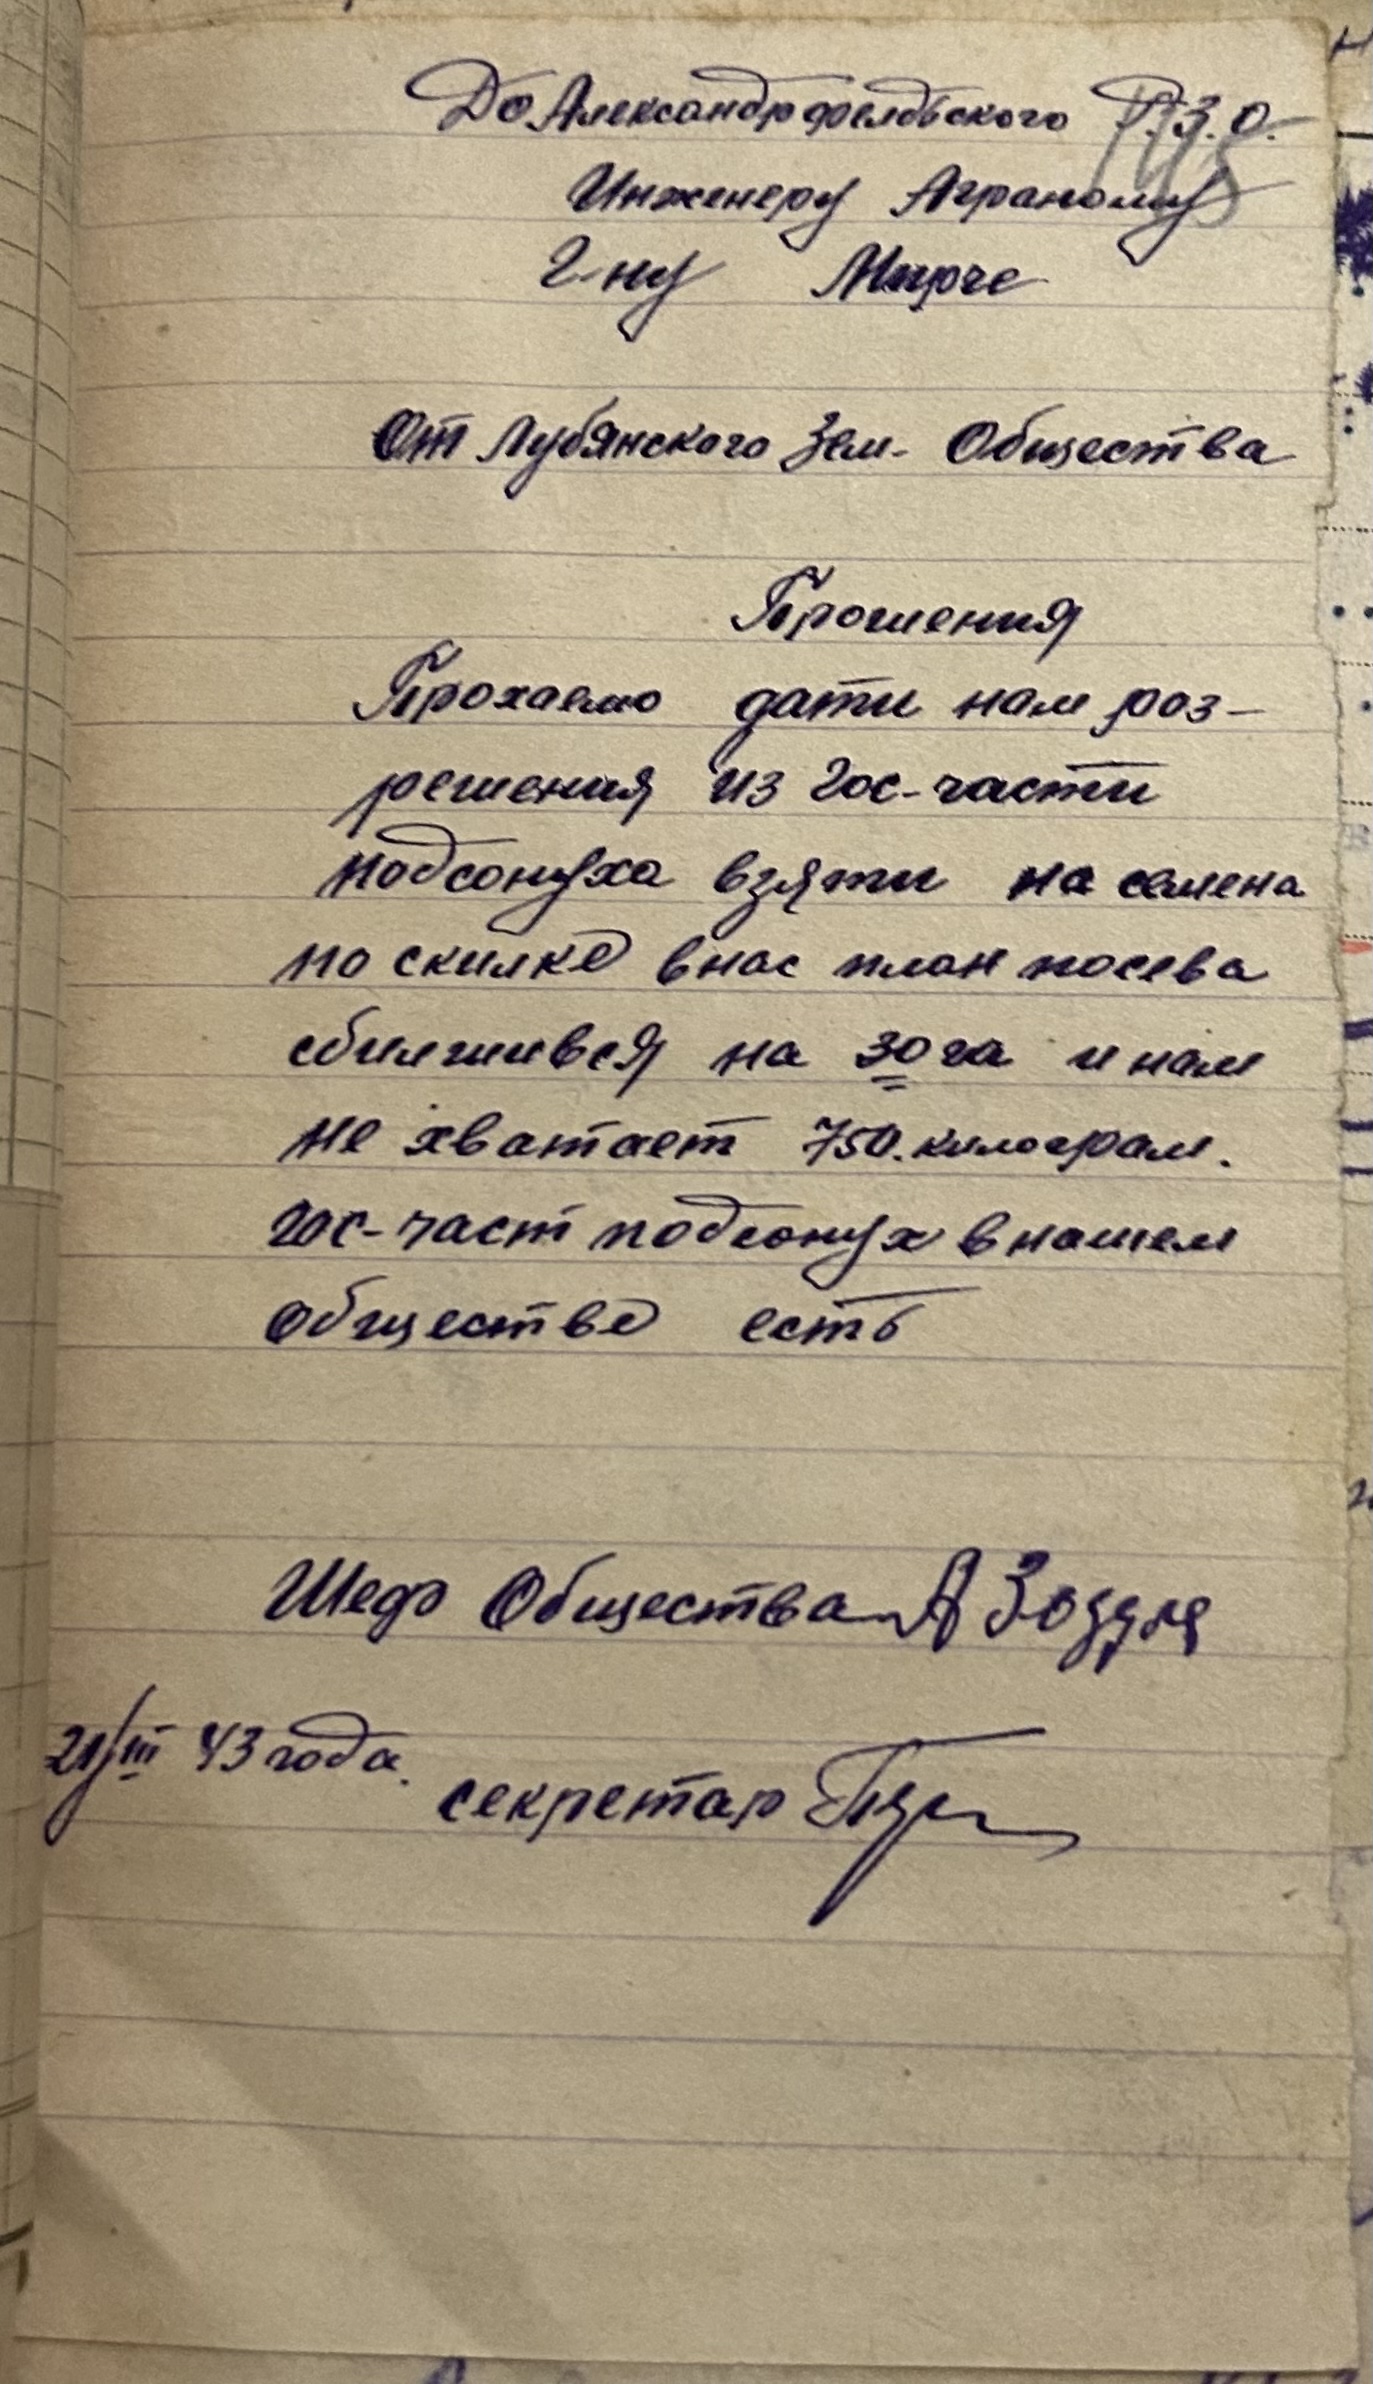 До Александрфелдьского Р.З.О.
Инженеру Аграному
Г-ну Мирче
От Лубянского Зем. Общества
Прошения
Прохаемо дати нам роз-
решения из Гос-части
подсонуха взяти на семена
по скилке внас план посева
сбилшився на 30 га и нам
не хватает 750. килограм.
Гос-част подсонух в нашем
обществе есть
Шеф Общества А Зозуля
21/III 43 года.
секретар